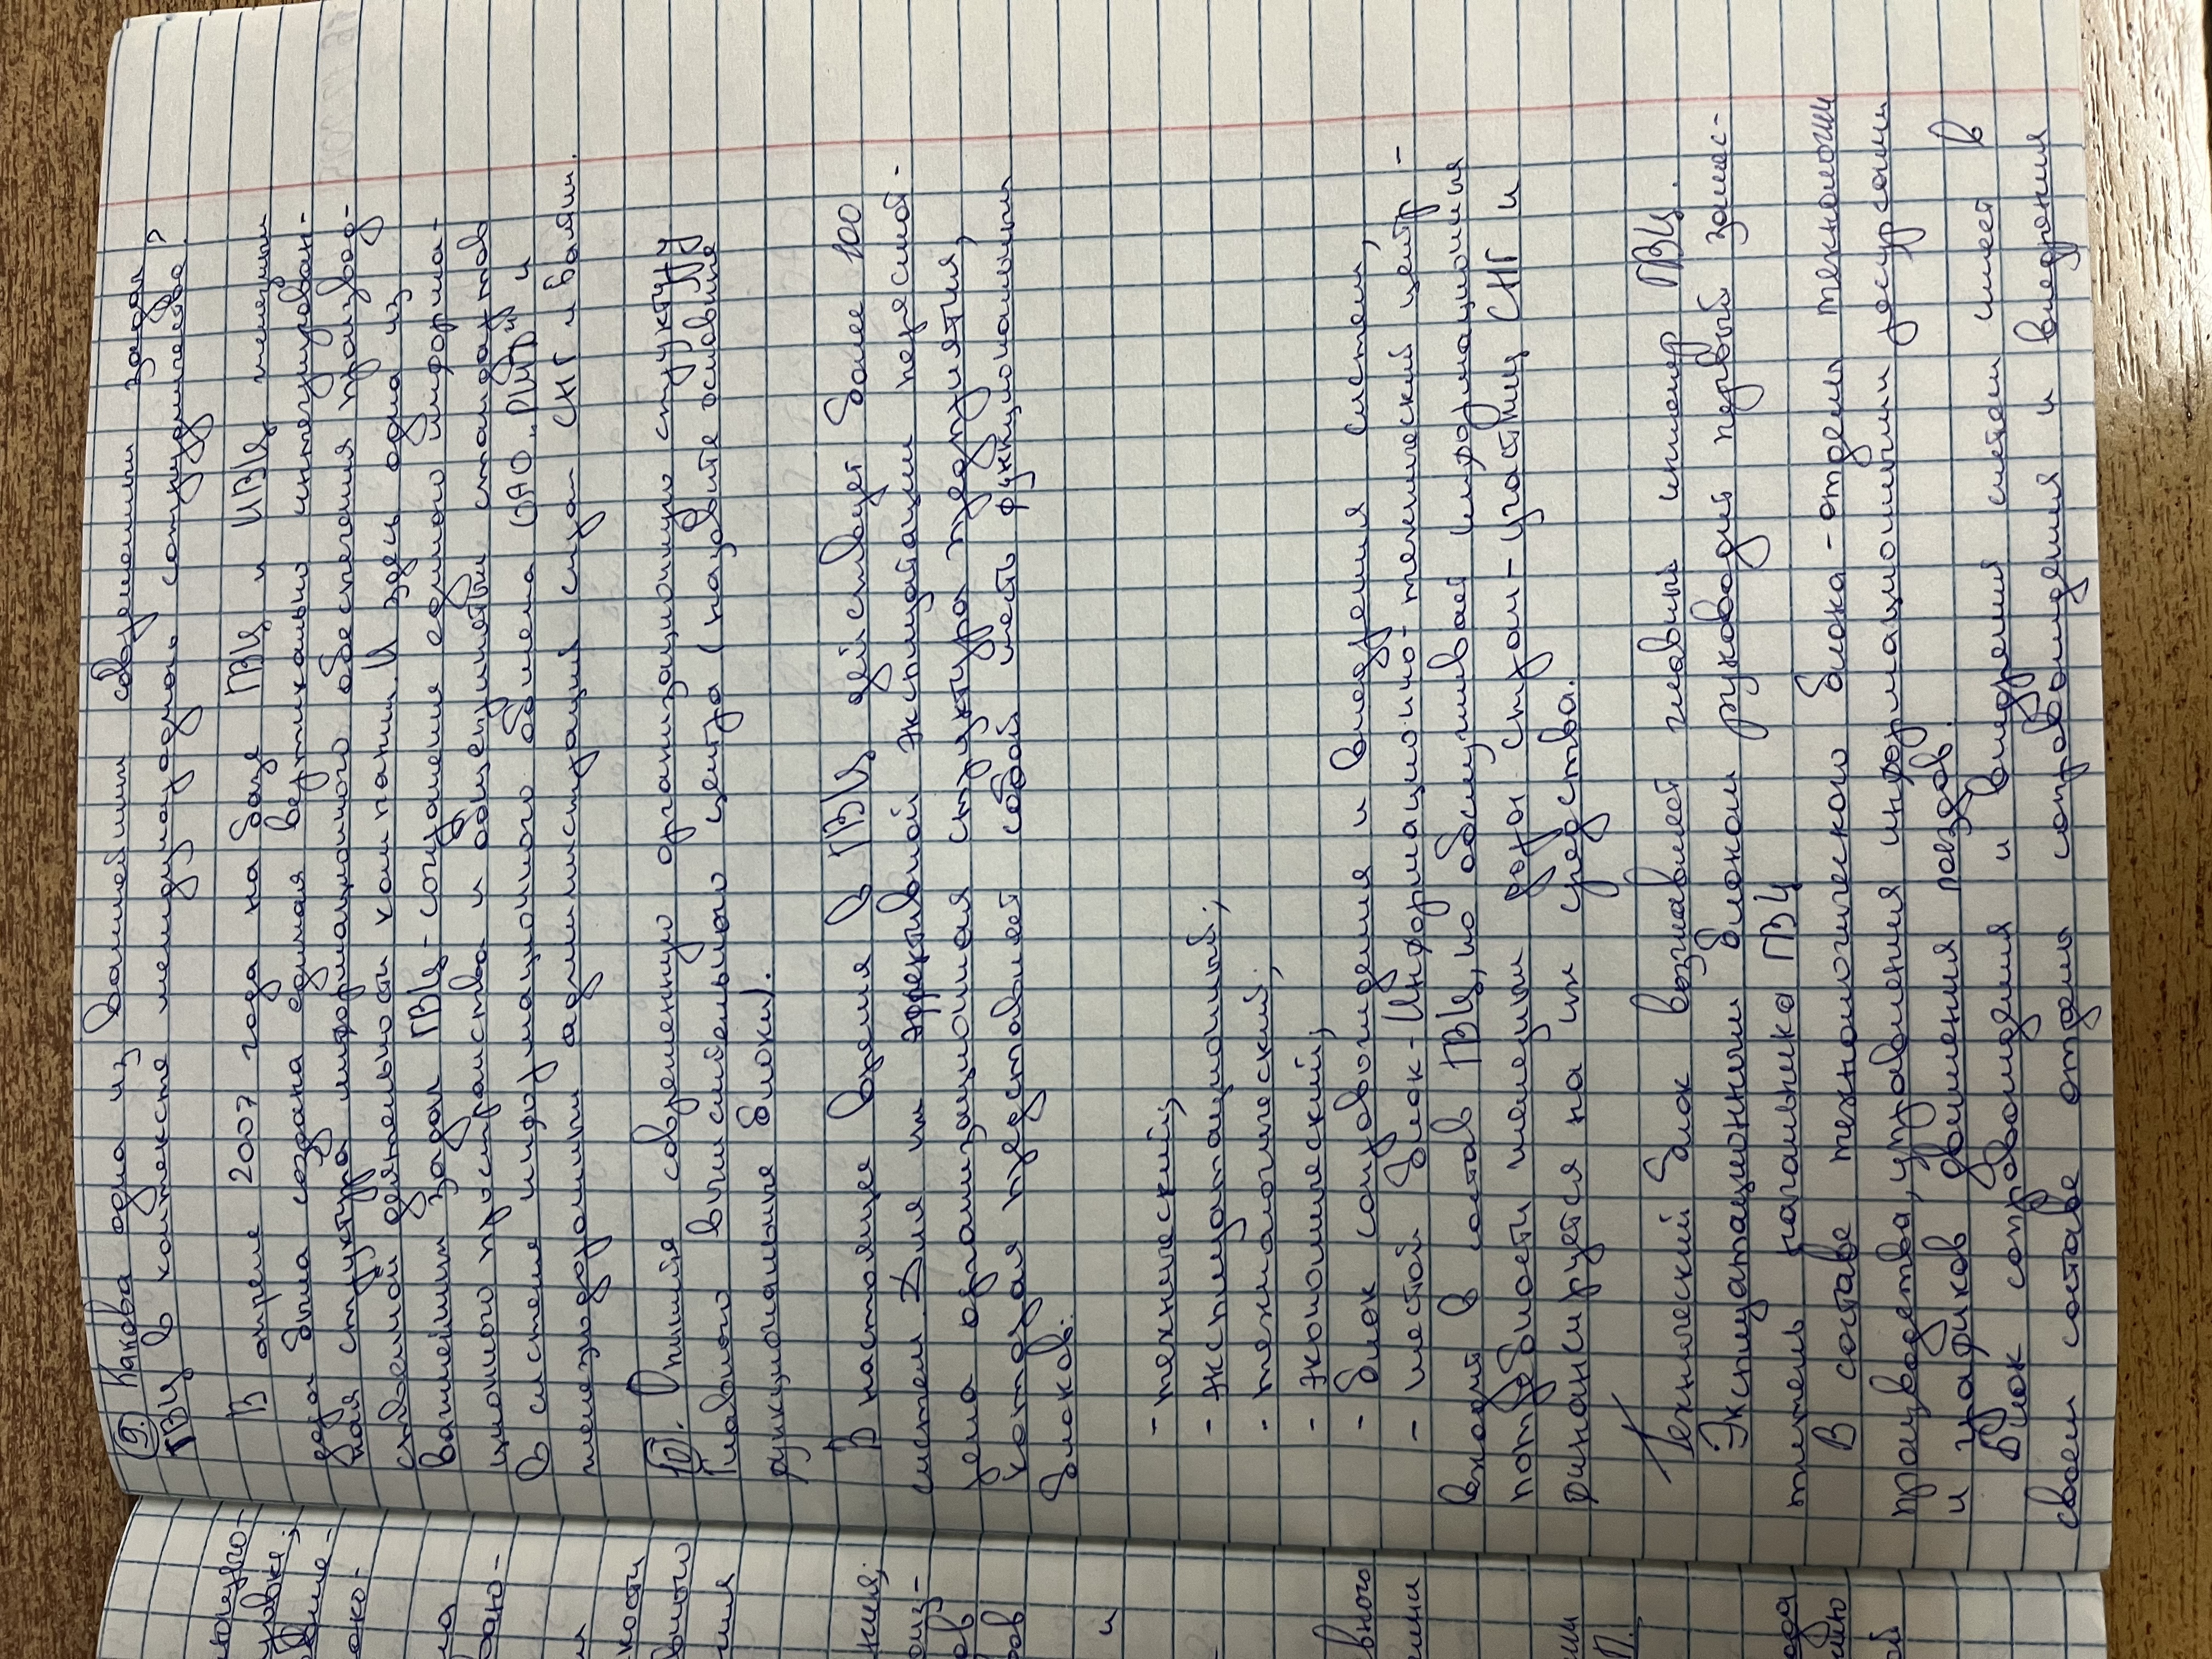 9. Какова одна из важнейших современных задач
ГВЦ в контексте международного сотрудничества?
В апреле 2007 года на базе ГВЦ и ИВЦ железных
дорог была создана единая вертикально интегрирован-
ная структура информационного обеспечения производ-
ственной деятельности компании. И здесь одна из
важнейших задач ГВЦ - сохранение единого информа-
ционного пространства и общепринятых стандартов
в системе информационного обмена ОАО „РЖД" и
железнодорожных администраций стран СНГ и Балтии.
10. Опишите современную организационную структуру
Главного вычислительного центра (назовите основные
функциональные блоки).
В настоящее время в ГВЦ действует более 100
систем. Для их эффективной эксплуатации пересмот-
рена организационная структура предприятия,
которая представляет собой шесть функциональных
блоков:
- технический;
- эксплуатационный;
- технологический;
- экономический;
- блок сопровождения и внедрения систем;
- шестой блок - Информационно-технический центр -
входит в состав ГВЦ, но обслуживает информационные
потребности железных дорог стран-участниц СНГ и
финансируется на их средства.
Технический блок возглавляет главный инженер ГВЦ.
Эксплуатационным блоком руководит первый замес-
титель начальника ГВЦ
В составе технологического блока - отделы технологии
производства, управления информационными ресурсами
и графиков движения поездов.
Блок сопровождения и внедрения систем имеет в
своем составе отделы сопровождения и внедрения